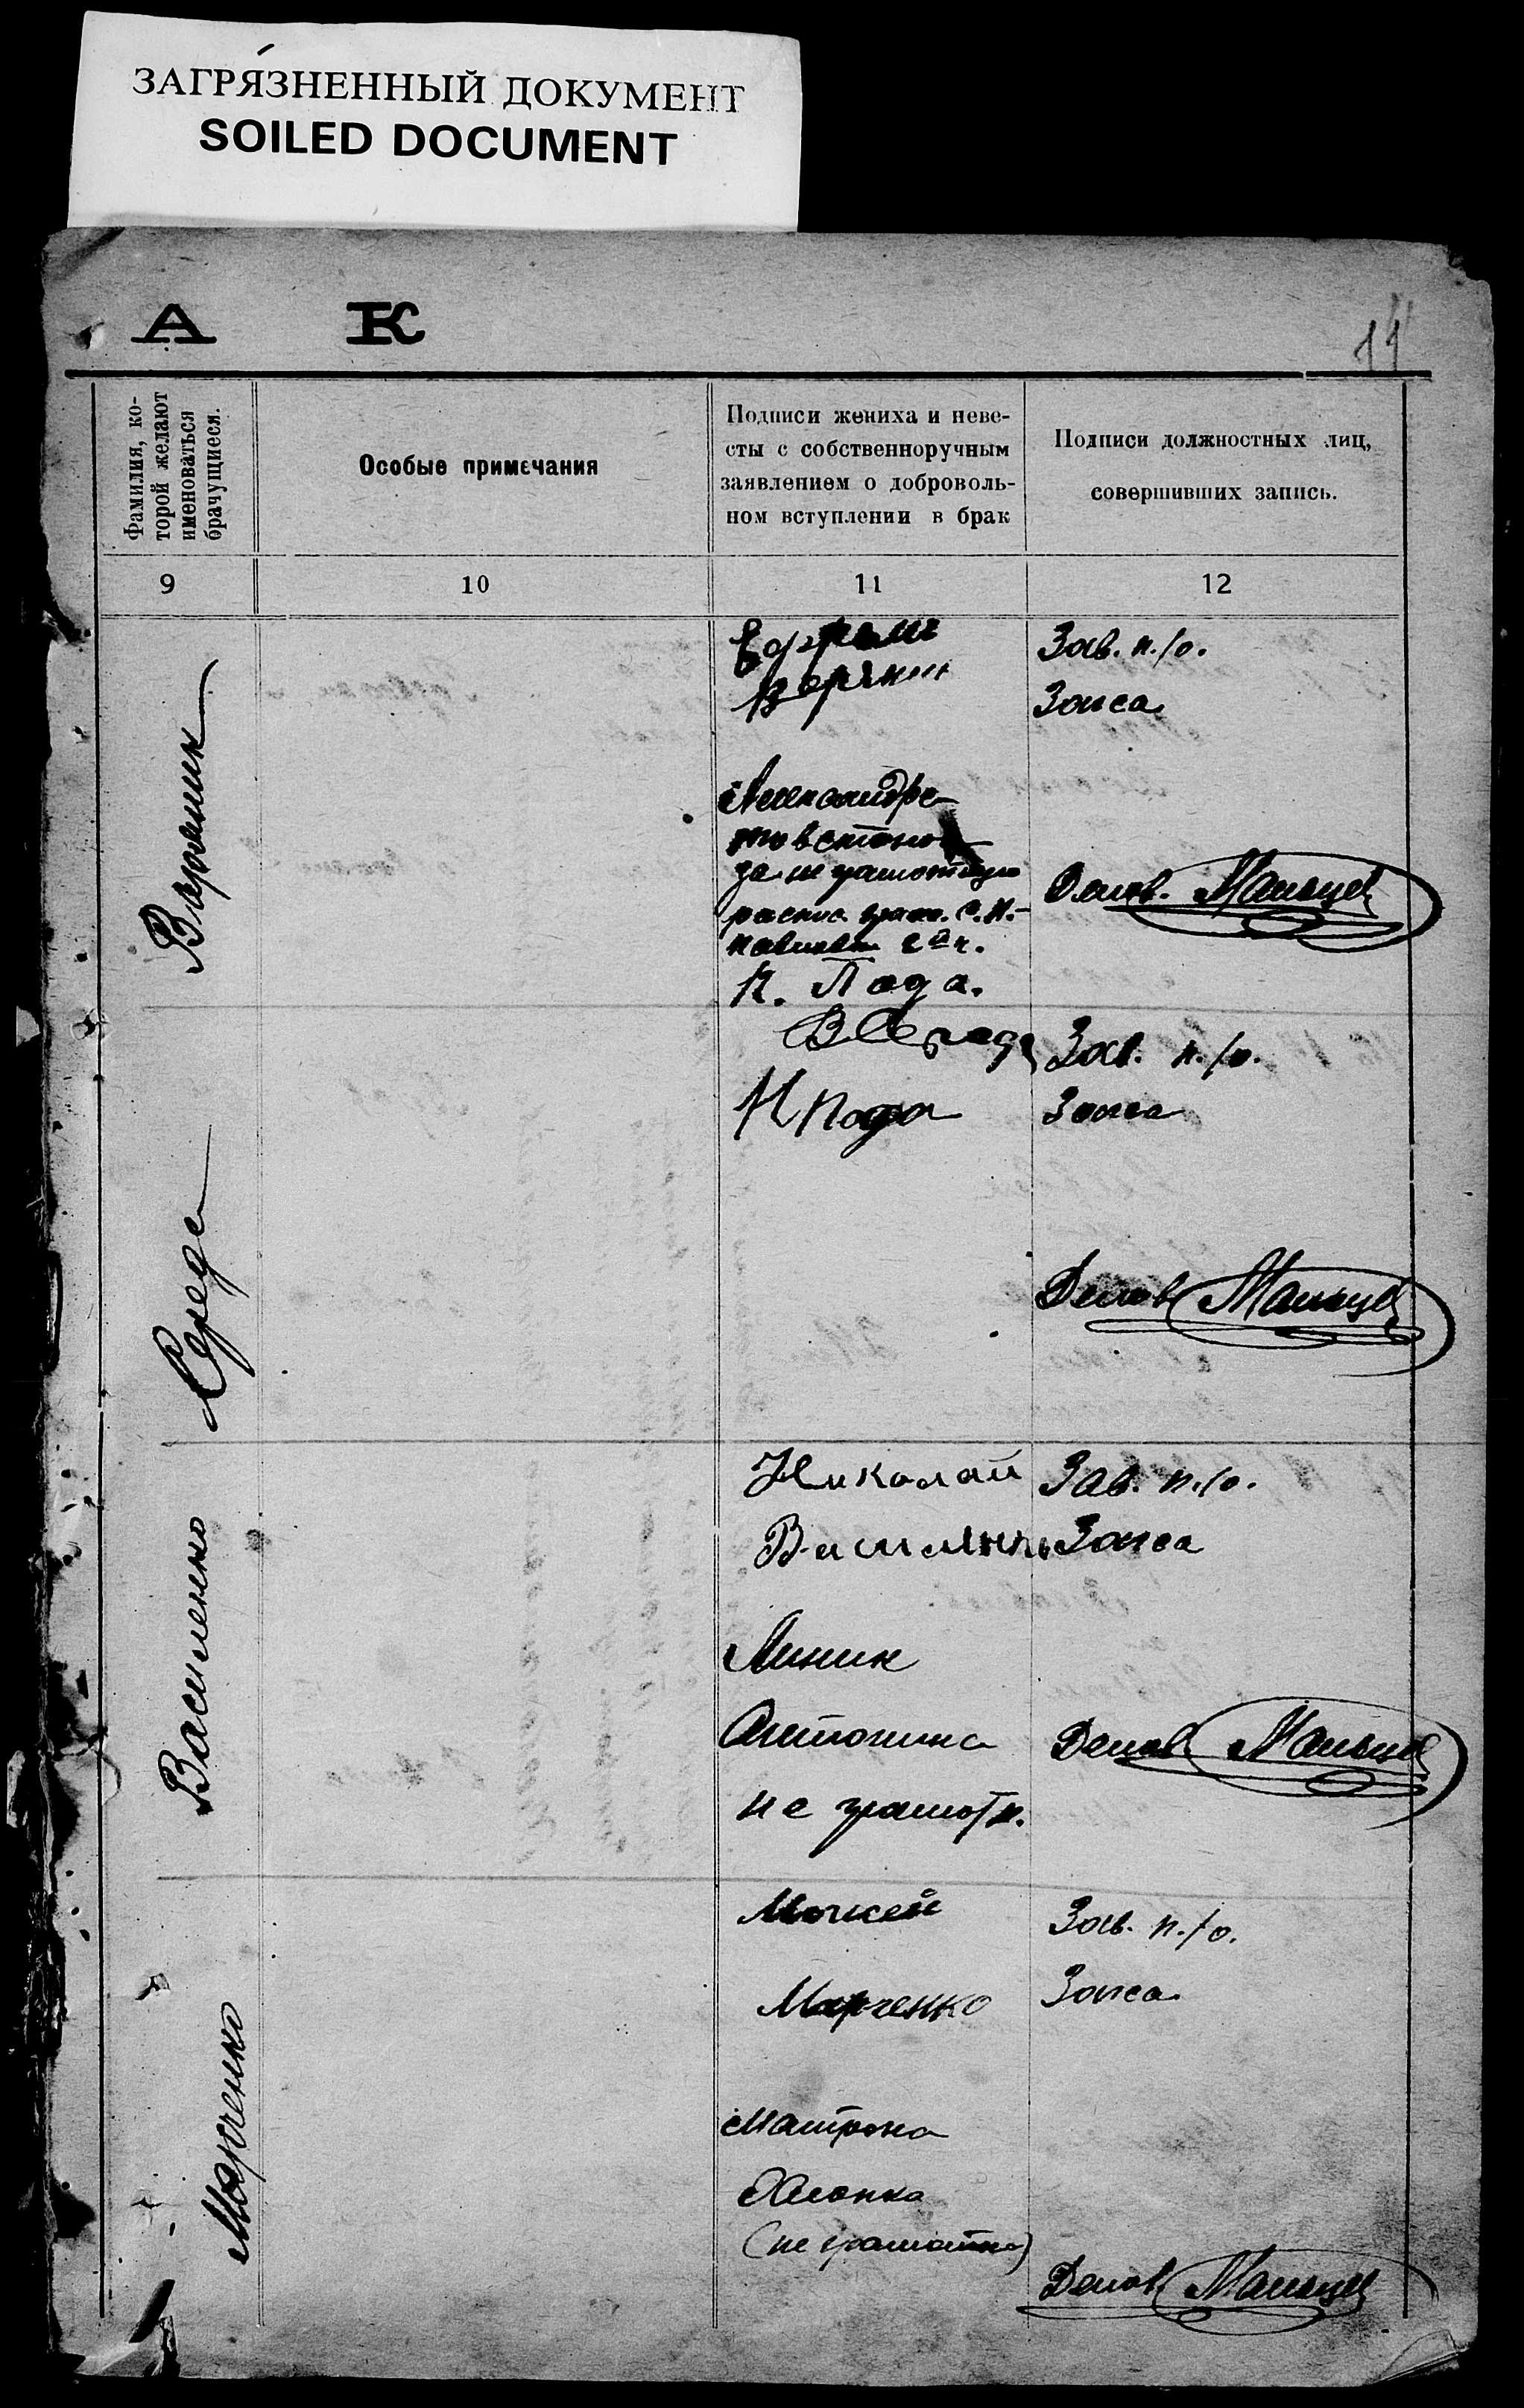 ЗАГРЯ́ЗНЕННЫЙ ДОКУМЕНТ
SOILED DOCUMENT
А К
11
Фамилия, ко-
торой желают
именоваться
брачущиеся.
Особые примечания
Подписи жениха и неве-
сты с собственноручным
заявлением о доброволь-
ном вступлении в брак
Подписи должностных лиц,
совершивших запись.
9
10
11
12
Зав. п./о.
Загса
Александра
за не грамотную
К. Пода.
Делов. Мальцев
Середа
В Середа
К Пода
Зав. п./о.
Загса
Делов Мальцев
Василенко
Николай
Василенко
Линик
Антонина
не грамотн.
Зав. п./о.
Загса
Делов Мальцев
Марченко
Моисей
Марченко
Матрона
Хлопка
(не грамотна)
Зав. п./о.
Загса
Делов Мальцев